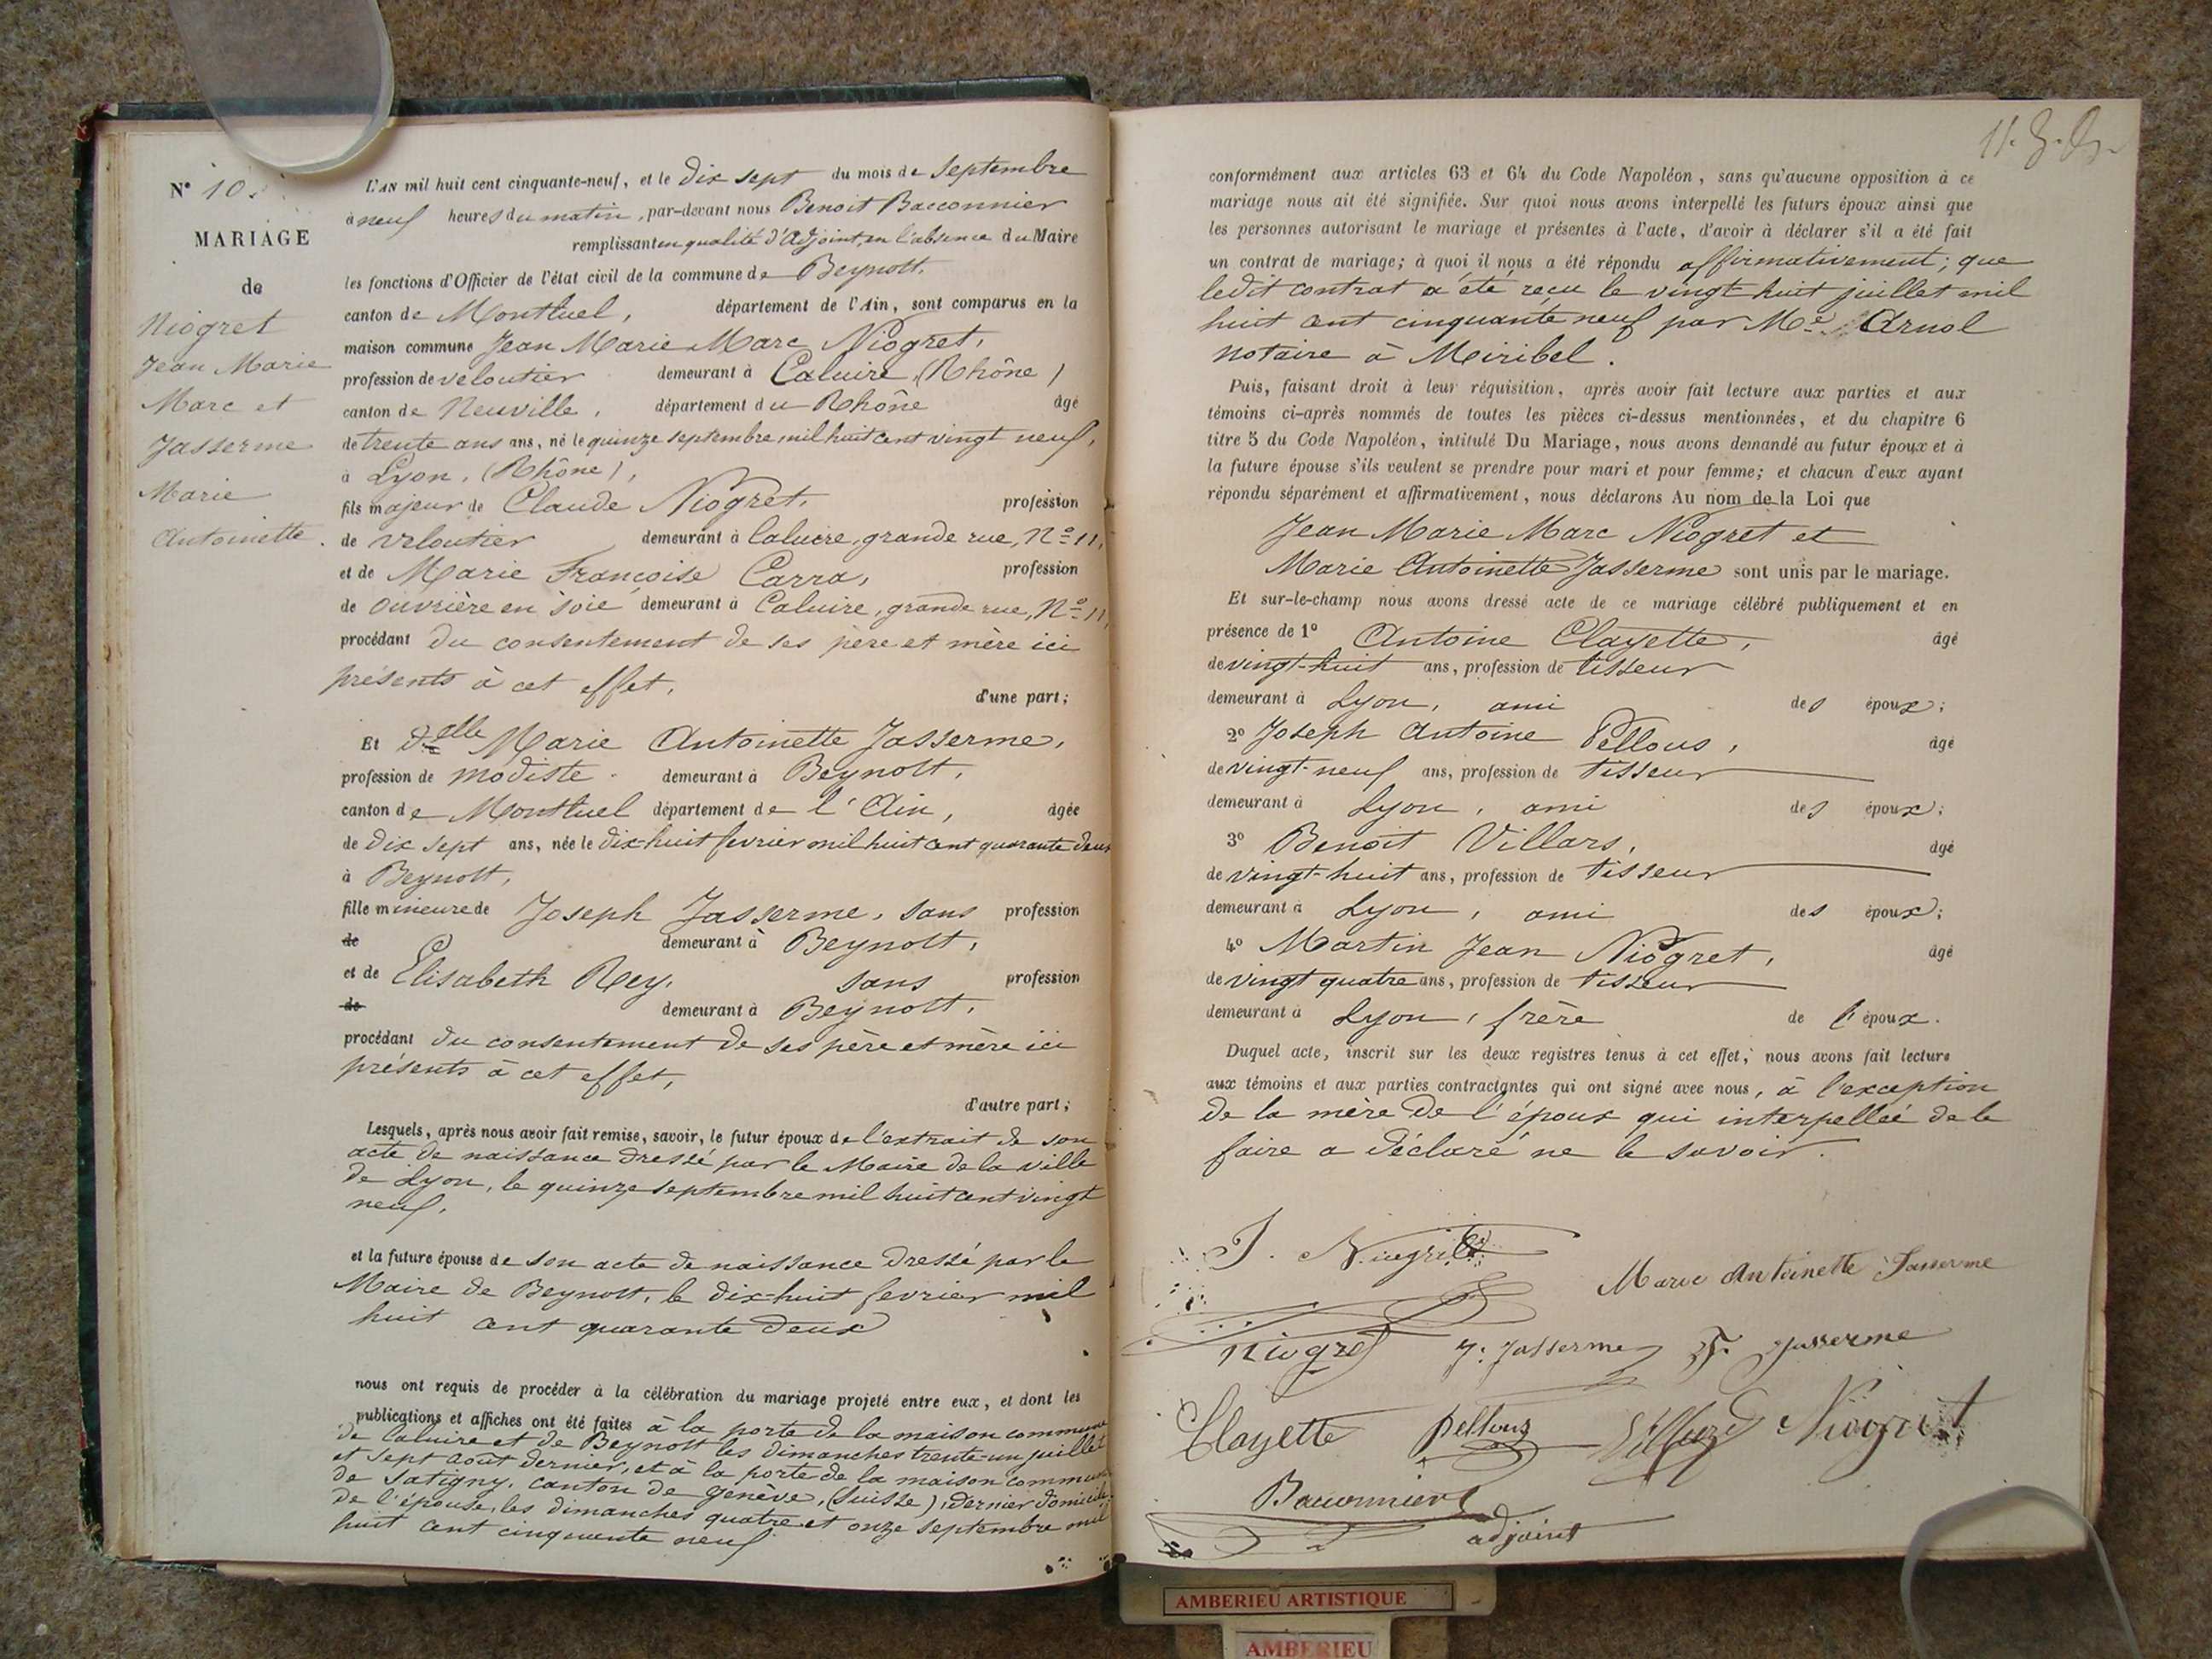 N° 10.
MARIAGE
de
Niogret
Jean Marie
Marc et
Jasserme
Marie
Antoinette.
L'AN mil huit cent cinquante-neuf, et le dix sept du mois de Septembre
à neuf heures du matin, par-devant nous Benoit Bacconnier
remplissant en qualité d'Adjoint, en l'absence du Maire
les fonctions d'Officier de l'état civil de la commune de Beynost.
canton de Montluel, département de l'Ain, sont comparus en la
maison commune Jean Marie Marc Niogret,
profession de veloutier demeurant à Caluire (Rhône)
canton de Neuville, département du Rhône âgé
de trente ans ans, né le quinze septembre mil huit cent vingt neuf,
à Lyon, (Rhône),
fils majeur de Claude Niogret, profession
de veloutier demeurant à Caluire, grande rue, N° 11,
et de Marie Françoise Carra, profession
de ouvrière en soie demeurant à Caluire, grande rue, N° 11,
procédant du consentement de ses père et mère ici
présents à cet effet, d'une part;
Et delle Marie Antoinette Jasserme,
profession de modiste demeurant à Beynost,
canton de Montluel département de l'Ain, âgée
de dix sept ans, née le dix-huit fevrier mil huit cent quarante deux
à Beynost,
fille mineure de Joseph Jasserme, sans profession
de demeurant à Beynost,
et de Elisabeth Rey, sans profession
de demeurant à Beynost,
procédant du consentement de ses père et mère ici
présents à cet effet,
d'autre part;
Lesquels, après nous avoir fait remise, savoir, le futur époux de l'extrait de son
acte de naissance dressé par le Maire de la ville
de Lyon, le quinze septembre mil huit cent vingt
neuf,
et la future épouse de son acte de naissance dressé par le
Maire de Beynost, le dix-huit fevrier mil
huit cent quarante deux
nous ont requis de procéder à la célébration du mariage projeté entre eux, et dont les
publications et affiches ont été faites à la porte de la maison commune
de Caluire et de Beynost les dimanches trente-un juillet
et sept août dernier, et à la porte de la maison commune
de Satigny, canton de Genève, (Suisse), dernier domicile
de l'épouse, les dimanches quatre et onze septembre mil
huit cent cinquante neuf
conformément aux articles 63 et 64 du Code Napoléon, sans qu'aucune opposition à ce
mariage nous ait été signifiée. Sur quoi nous avons interpellé les futurs époux ainsi que
les personnes autorisant le mariage et présentes à l'acte, d'avoir à déclarer s'il a été fait
un contrat de mariage; à quoi il nous a été répondu affirmativement; que
ledit contrat a été reçu le vingt huit juillet mil
huit cent cinquante neuf par Me Arnol
notaire à Miribel.
Puis, faisant droit à leur réquisition, après avoir fait lecture aux parties et aux
témoins ci-après nommés de toutes les pièces ci-dessus mentionnées, et du chapitre 6
titre 5 du Code Napoléon, intitulé Du Mariage, nous avons demandé au futur époux et à
la future épouse s'ils veulent se prendre pour mari et pour femme; et chacun d'eux ayant
répondu séparément et affirmativement, nous déclarons Au nom de la Loi que
Jean Marie Marc Niogret et
Marie Antoinette Jasserme sont unis par le mariage.
Et sur-le-champ nous avons dressé acte de ce mariage célébré publiquement et en
présence de 1° Antoine Clayette, âgé
de vingt-huit ans, profession de tisseur
demeurant à Lyon, ami des époux;
2° Joseph Antoine Pellous, âgé
de vingt-neuf ans, profession de tisseur
demeurant à Lyon, ami des époux;
3° Benoît Villars, âgé
de vingt-huit ans, profession de tisseur
demeurant à Lyon, ami des époux;
4° Martin Jean Niogret, âgé
de vingt quatre ans, profession de tisseur
demeurant à Lyon, frère de l'époux.
Duquel acte, inscrit sur les deux registres tenus à cet effet, nous avons fait lecture
aux témoins et aux parties contractantes qui ont signé avec nous, à l'exception
de la mère de l'époux qui interpellée de le
faire a déclaré ne le savoir.
J. Niogret
Marie Antoinette Jasserme
Niogret J. Jasserme Jasserme
Clayette Pellous Niogret
Bacconnier
adjoint
AMBERIEU ARTISTIQUE
AMBERIEU